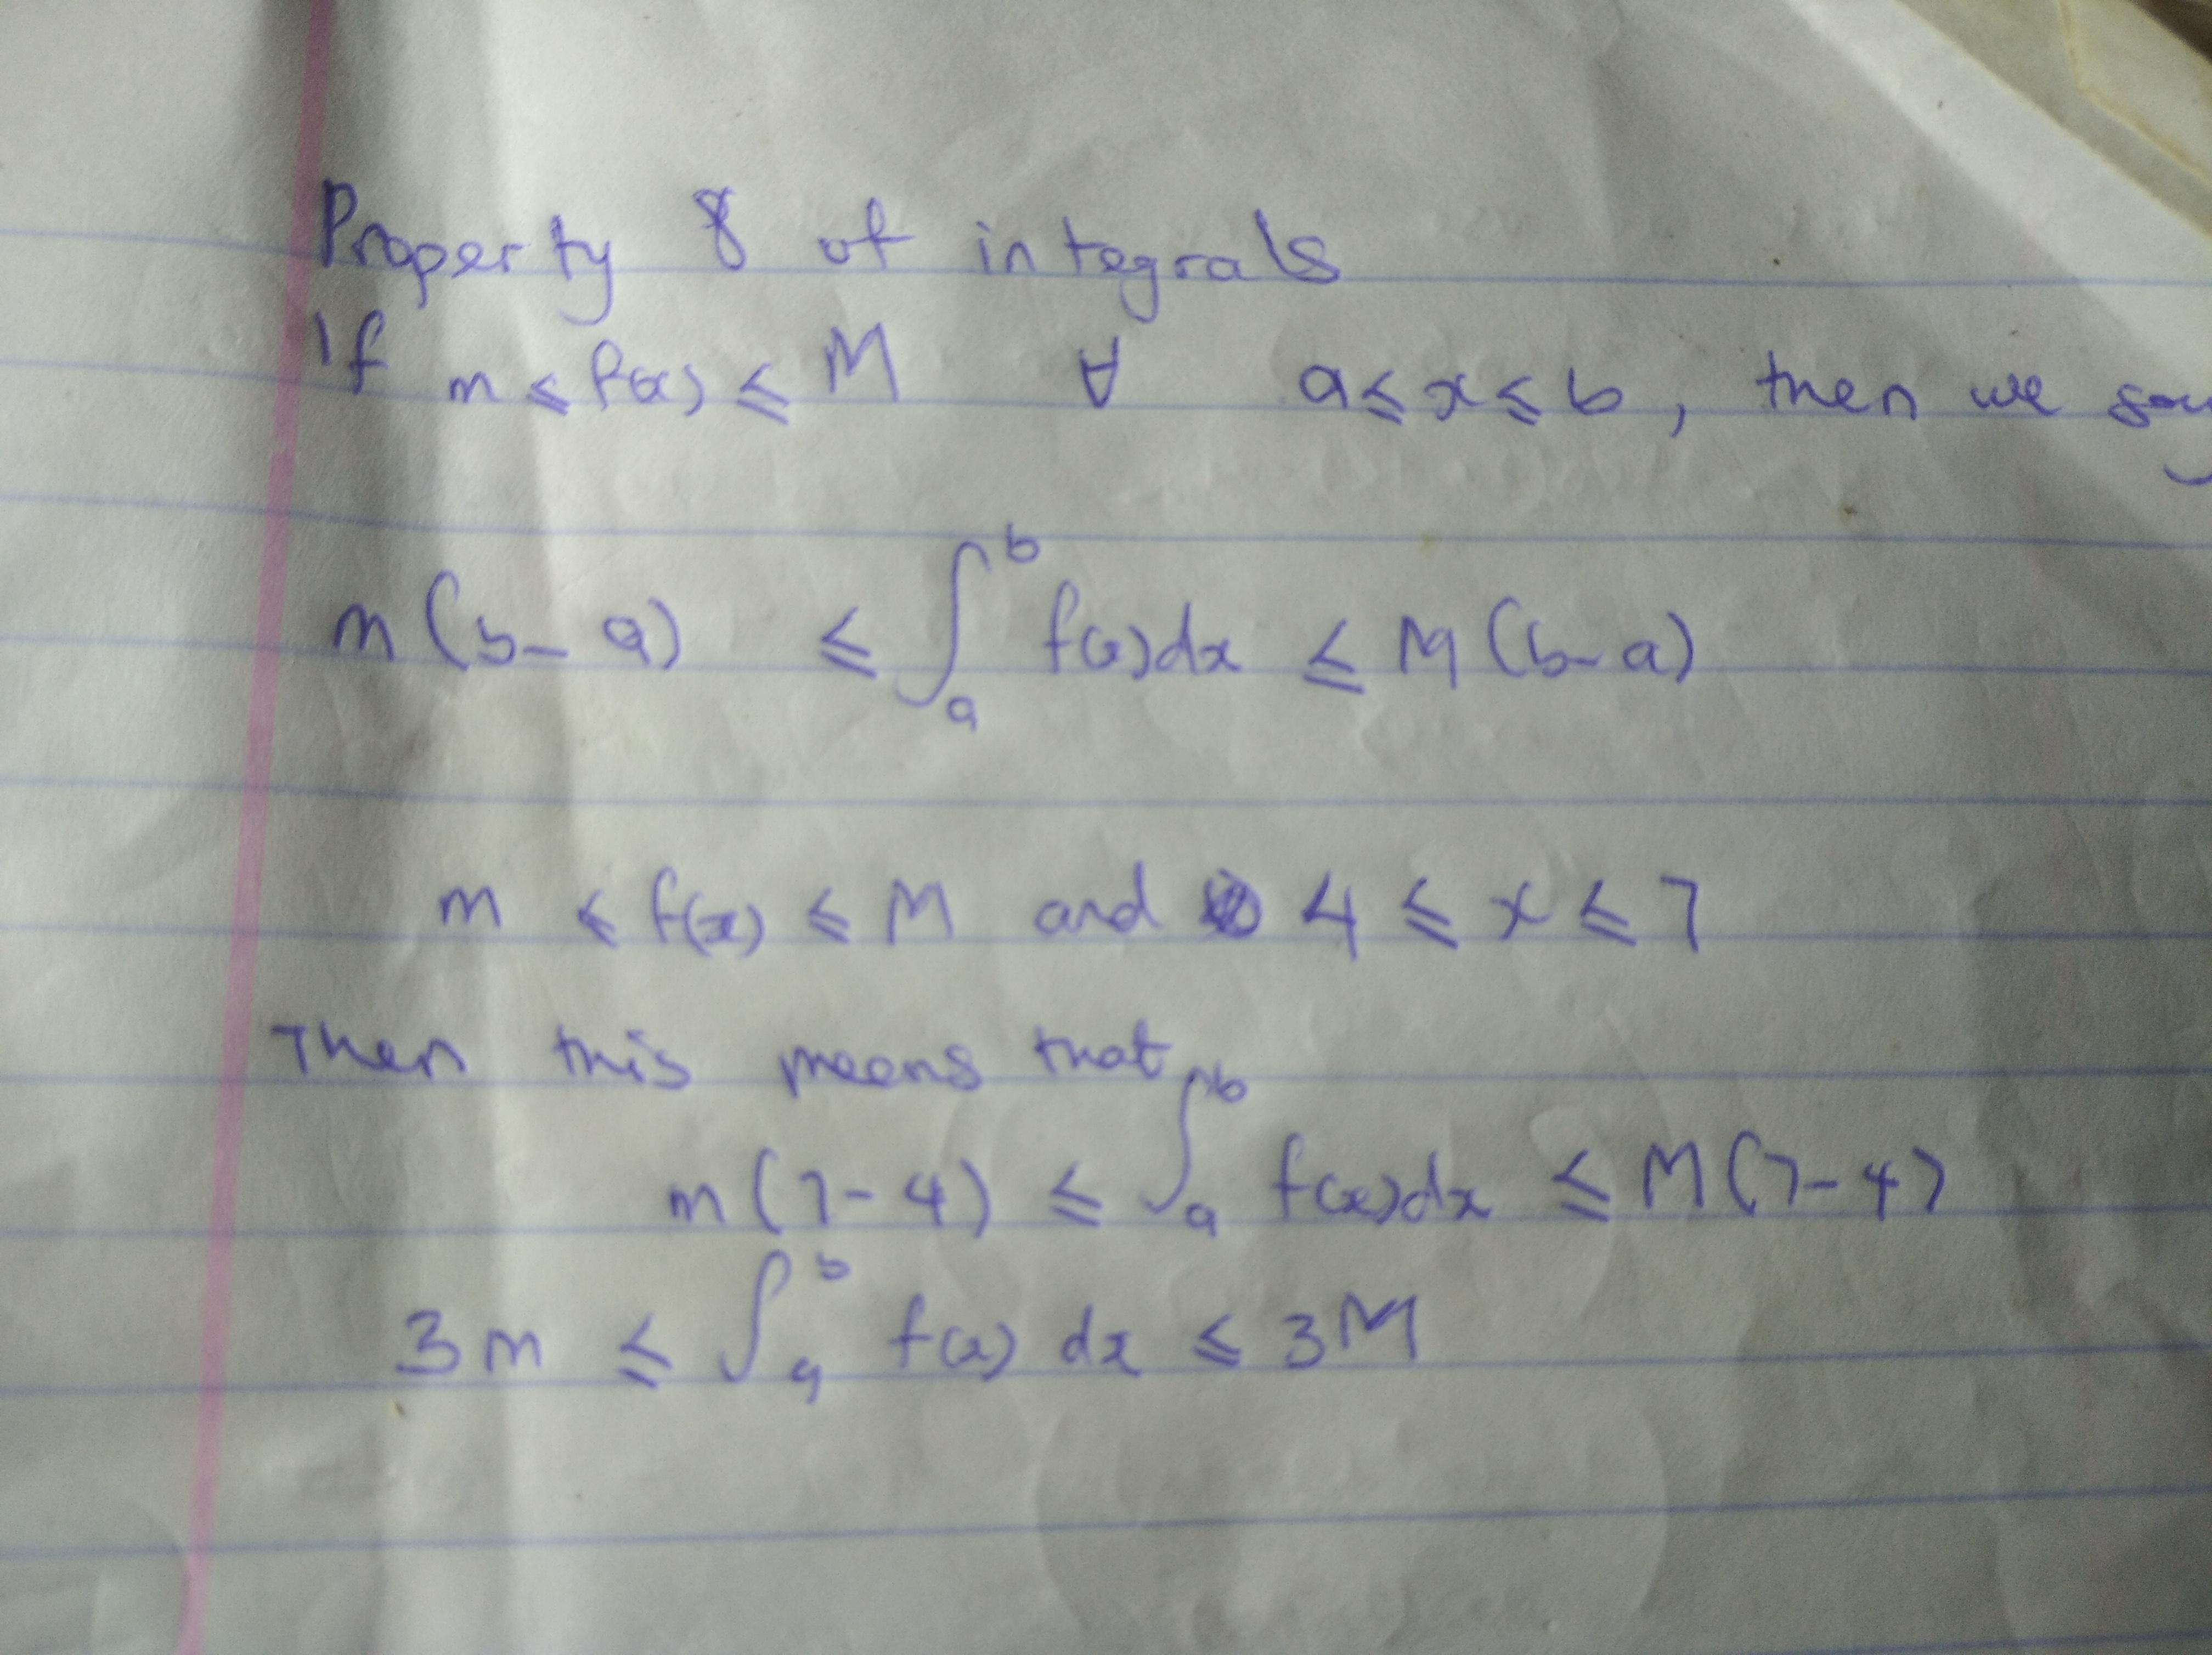 Property 8 of integrals
If m ⩽ f(x) ⩽ M ∀ a ⩽ x ⩽ b, then we say
m(b - a) ⩽ ∫ₐᵇ f(x)dx ⩽ M(b-a)
m ⩽ f(x) ⩽ M and 4 ⩽ x ⩽ 7
Then this means that
m(7-4) ⩽ ∫ₐᵇ f(x)dx ⩽ M(7-4)
3m ⩽ ∫ₐᵇ f(x) dx ⩽ 3M